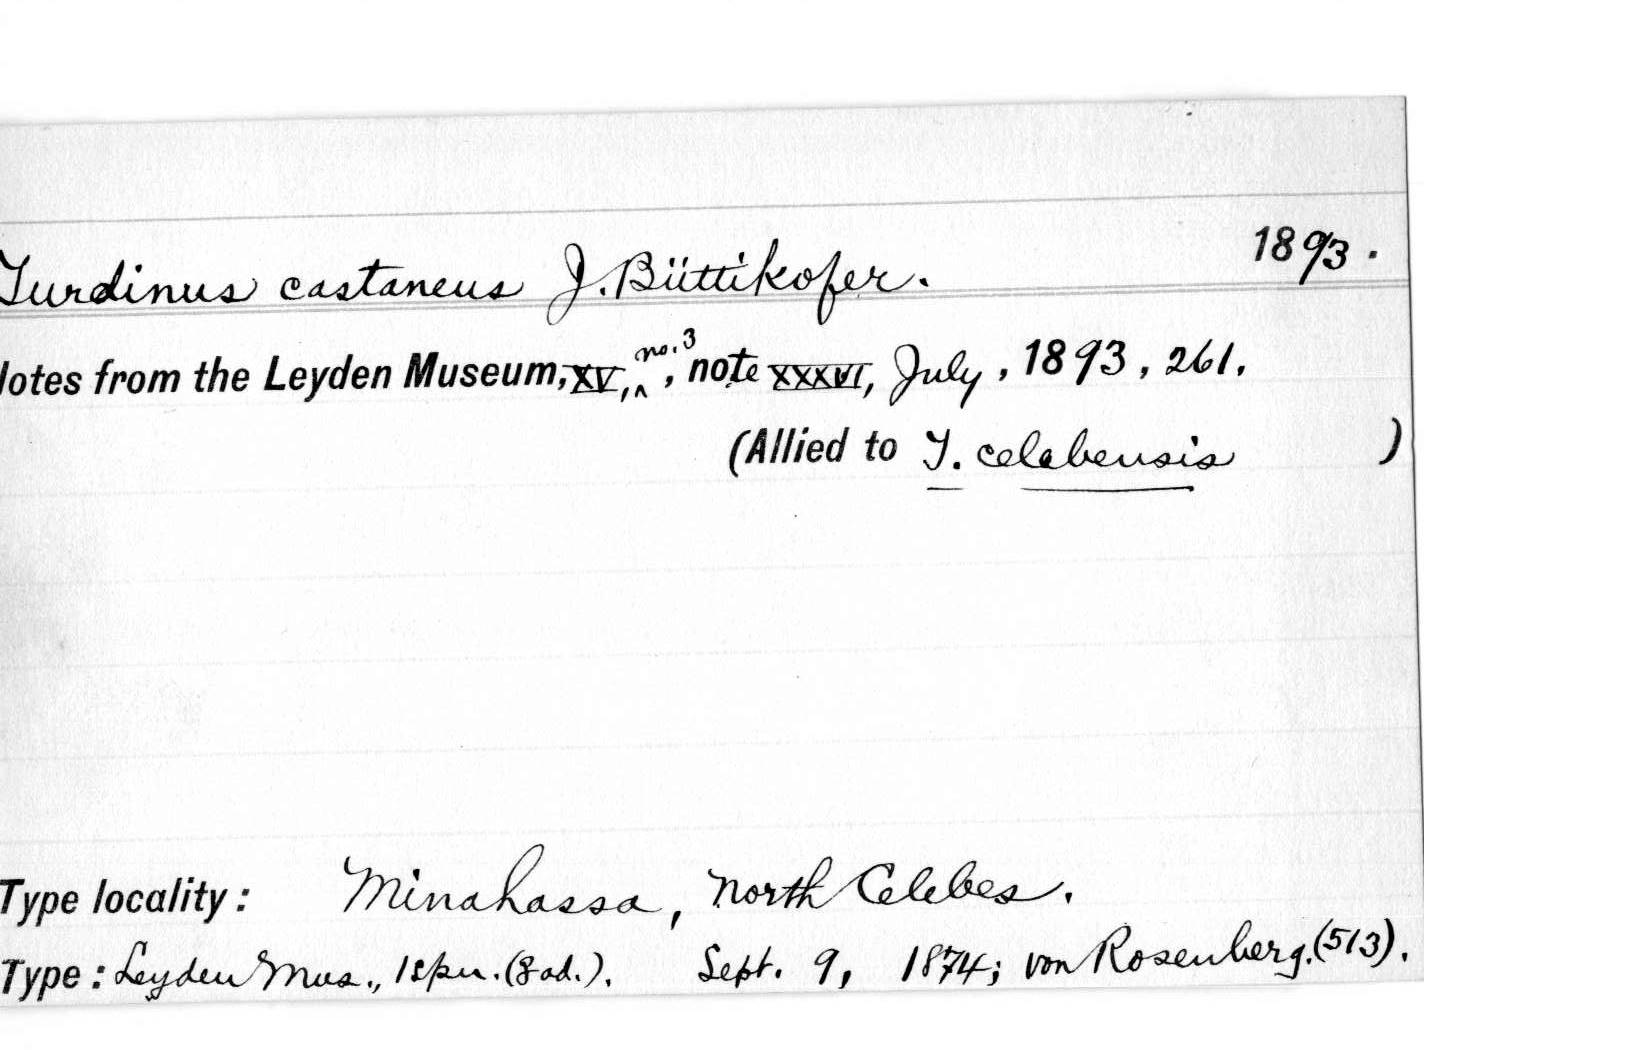 Turdinus castaneus J. Büttikofer. 1893.
Notes from the Leyden Museum, XV, no. 3, note XXXVI, July, 1893, 261.
(Allied to T. celebensis )
Type locality: Minahassa, north Celebes.
Type: Leyden Mus., 1 spn. (♂ ad.). Sept. 9, 1874; von Rosenberg. (513).